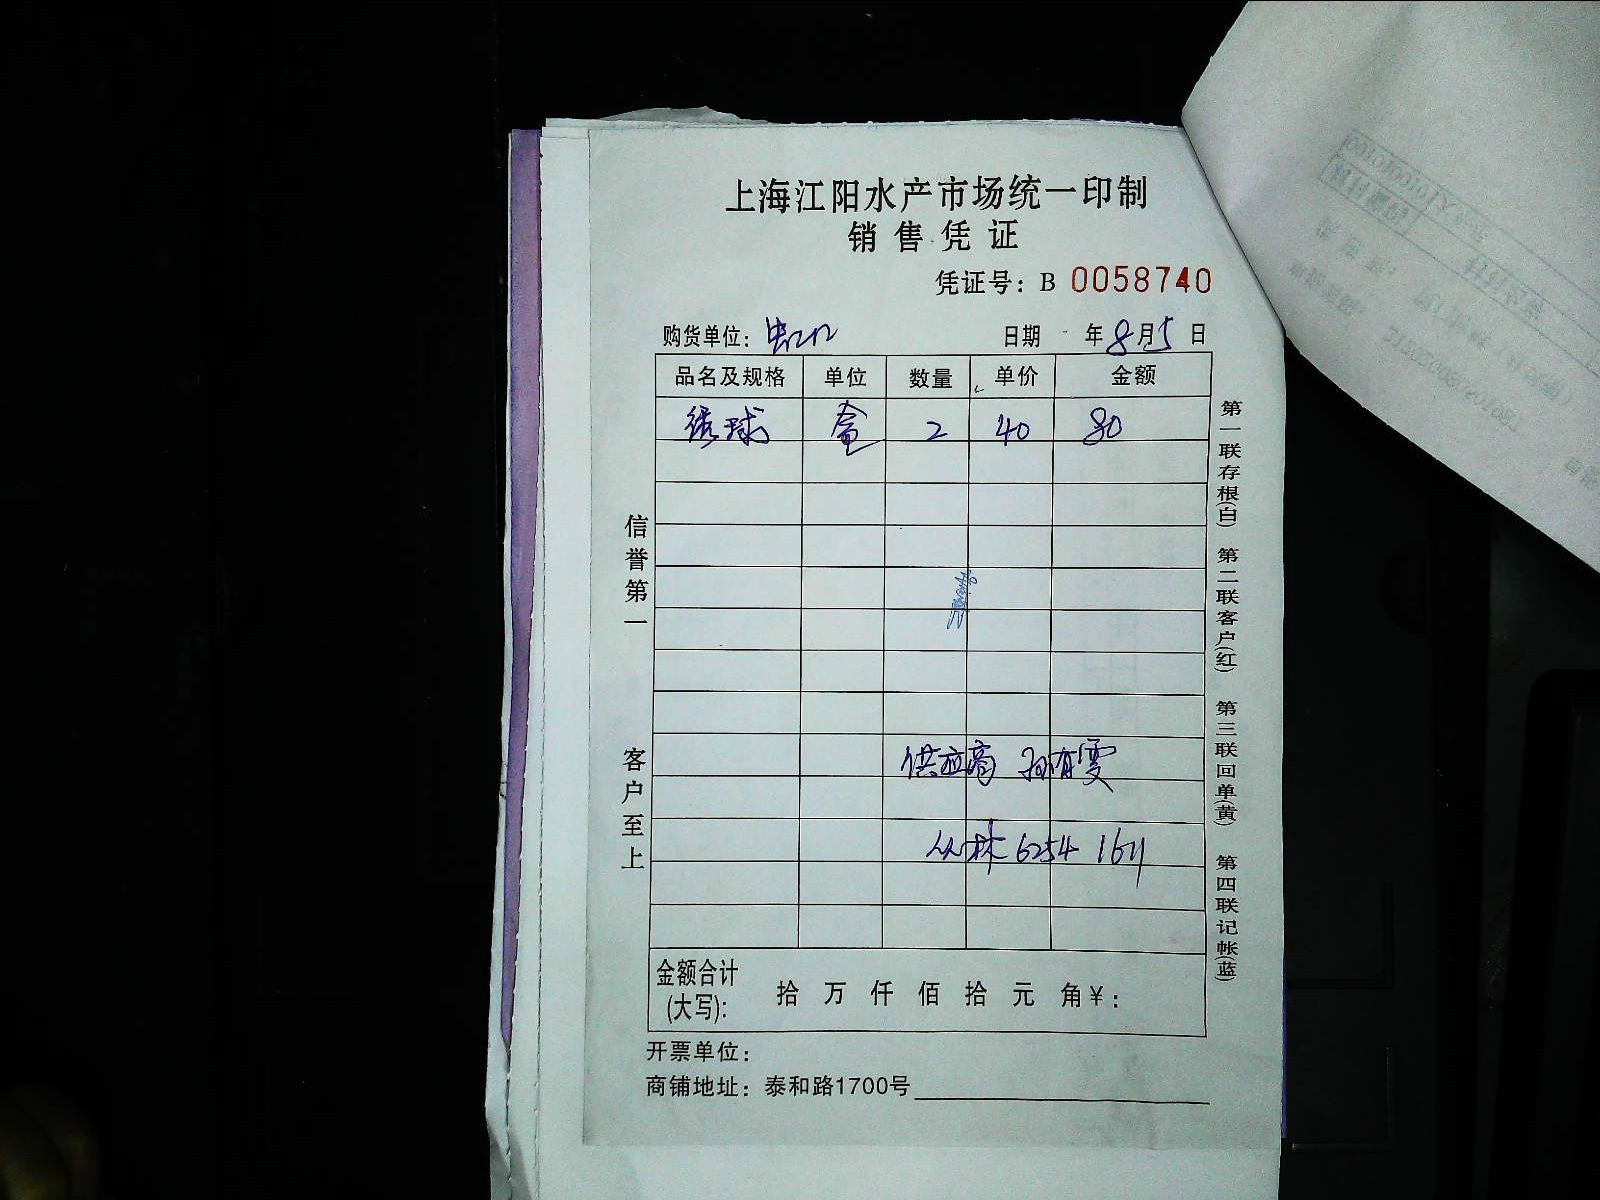 上海江阳水产市场统一印制
销售凭证
凭证号：B 0058740
购货单位：虹口 日期 年8月5日
品名及规格 单位 数量 单价 金额
绣球 盒 2 40 80
供应商 孙有雯
丛林 6254 1611
金额合计(大写)： 拾 万 仟 佰 拾 元 角￥：
开票单位：
商铺地址：泰和路1700号
信誉第一 客户至上
第一联存根(白) 第二联客户(红) 第三联回单(黄) 第四联记帐(蓝)